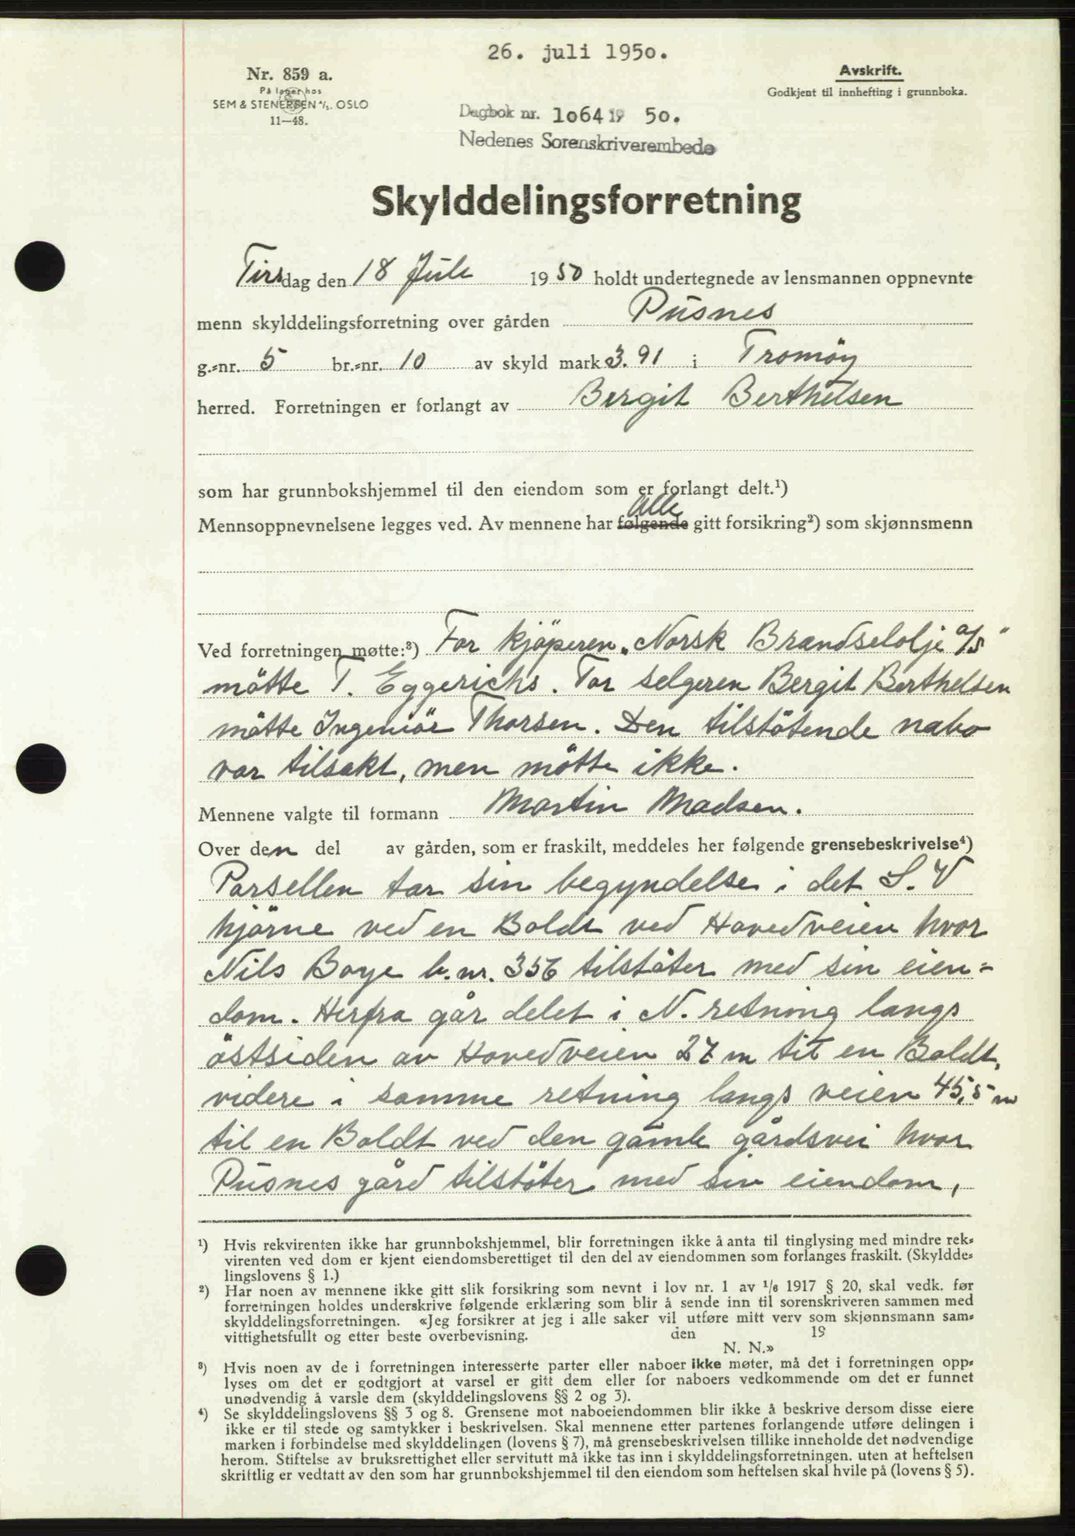 26. juli 1950.
Nr. 859 a.
På lager hos
SEM & STENERSEN A/S. OSLO
11—48.
Avskrift.
Godkjent til innhefting i grunnboka.
Dagbok nr. 1064 19 50.
Nedenes Sorenskriverembede
Skylddelingsforretning
Tirsdag den 18 Juli 1950 holdt undertegnede av lensmannen oppnevnte
menn skylddelingsforretning over gården Pusnes
g.-nr. 5 br.-nr. 10 av skyld mark 3.91 i Tromöy
herred. Forretningen er forlangt av Bergit Berthelsen
som har grunnbokshjemmel til den eiendom som er forlangt delt.¹)
alle
Mennsoppnevnelsene legges ved. Av mennene har følgende gitt forsikring²) som skjønnsmenn
Ved forretningen møtte:³) For kjöperen „Norsk Brændselolje a/s"
mötte T. Eggerichs. For selgeren Bergit Berthelsen
mötte Ingeniör Thorsen. Den tilstötende nabo
var tilsakt, men mötte ikke.
Mennene valgte til formann Martin Madsen.
Over den del av gården, som er fraskilt, meddeles her følgende grensebeskrivelse⁴)
Parsellen tar sin begyndelse i det S.V
hjörne ved en Boldt ved Hovedveien hvor
Nils Boye b.nr. 356 tilstöter med sin eien-
dom. Herfra går delet i N. retning langs
östsiden av Hovedveien 27 m til en Boldt,
videre i samme retning langs veien 45,5 m
til en Boldt ved den gamle gårdsvei hvor
Pusnes gård tilstöter med sin eiendom,
¹) Hvis rekvirenten ikke har grunnbokshjemmel, blir forretningen ikke å anta til tinglysing med mindre rek-
virenten ved dom er kjent eiendomsberettiget til den del av eiendommen som forlanges fraskilt. (Skyldde-
lingslovens § 1.)
²) Har noen av mennene ikke gitt slik forsikring som nevnt i lov nr. 1 av 1/6 1917 § 20, skal vedk. før
forretningen holdes underskrive følgende erklæring som blir å sende inn til sorenskriveren sammen med
skylddelingsforretningen. «Jeg forsikrer at jeg i alle saker vil utføre mitt verv som skjønnsmann sam-
vittighetsfullt og etter beste overbevisning. den 19
N. N.»
³) Hvis noen av de i forretningen interesserte parter eller naboer ikke møter, må det i forretningen opp-
lyses om det er godtgjort at varsel er gitt dem eller for naboers vedkommende om det er funnet
unødvendig å varsle dem (skylddelingslovens §§ 2 og 3).
⁴) Se skylddelingslovens §§ 3 og 8. Grensene mot naboeiendommen blir ikke å beskrive dersom disse eiere
ikke er til stede og samtykker i beskrivelsen. Skal mennene etter partenes forlangende utføre delingen i
marken i forbindelse med skylddelingen (lovens § 7), må grensebeskrivelsen tillike inneholde det nødvendige
herom. Stiftelse av bruksrettighet eller servitutt må ikke tas inn i skylddelingsforretningen. uten at heftelsen
skriftlig er vedtatt av den som har grunnbokshjemmel til den eiendom som heftelsen skal hvile på (lovens § 5).